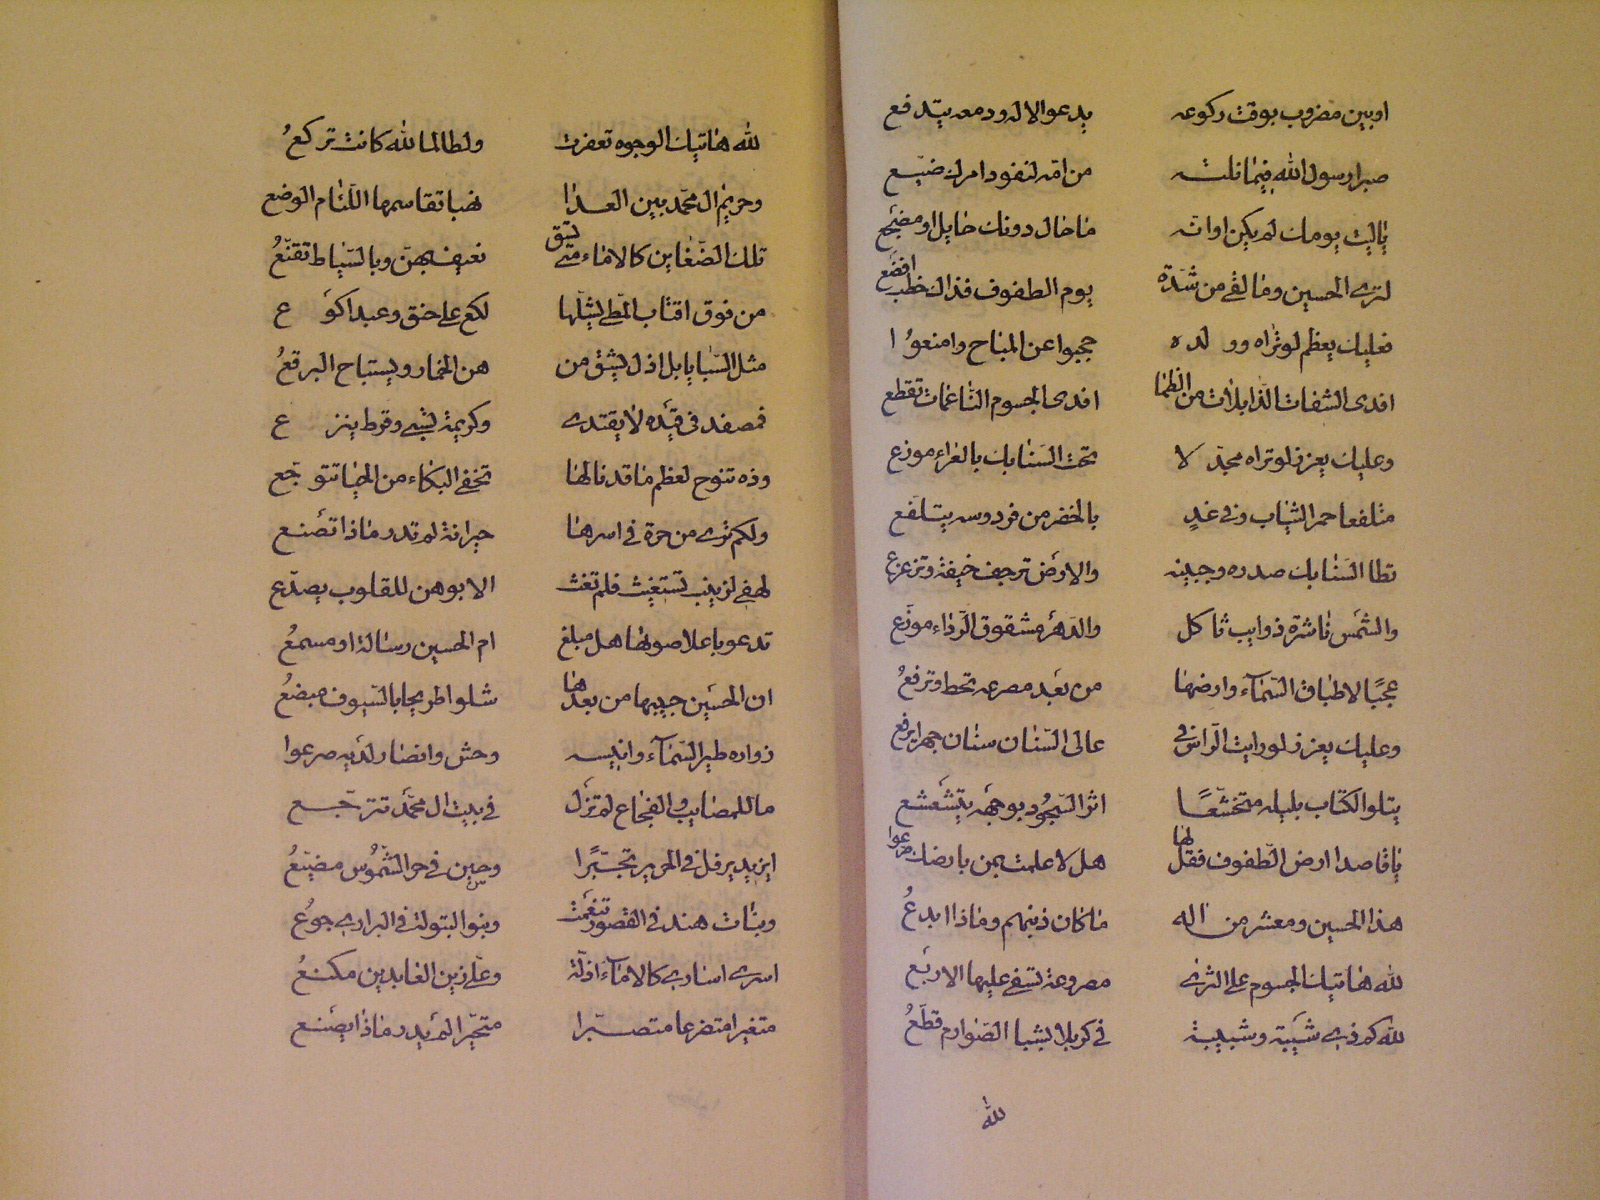 او بين مضروب بوقت ركوعه يدعو الاله ودمعه يتدفع
صبرا رسول الله فيما نلته من امة لنفود امرك ضيع
ياليت يومك لم يكن اواته ما حال دونك حايل او مضجع
لترى الحسين وما لقى من شدة يوم الطفوف فذاك خطب افضع
فعليك يعظم لو تراه وولده حجبوا عن المباح وامنعوا
افدى الشفات الذابلات من الظما افدى الجسوم الناعمات تقطع
وعليك يعزز لو تراه مجدلا تحت السنابك بالعراء موزع
متلفعا حمر الثياب وفى غد بالخضر من فردوسه يتلفع
تطا السنابك صدره وجبينه والارض ترجف خيفة وتزعزع
والشمس ناشرة ذوايب ثاكل والدهر مشقوق الرداء موزع
عجبا لاطباق السمآء وارضها من بعد مصرعه تحط وترفع
وعليك يعزز لو رايت الراس فى عالى السنان سنان جهرا يرفع
يتلو الكتاب بليله متخشعا اثر السجود بوجهه يتشعشع
ياقاصدا ارض الطفوف فقل لها هل لا علمت بمن بارضك صرعوا
هذا الحسين ومعشر من اله ما كان ذنبهم وماذا ابدع
لله هاتيك الجسوم على الثرى مصروعة تسفى عليها الاربع
لله كم ذى شيبة وشبيبة فى كربلا بشبا الصوارم قطع
لله
لله هاتيك الوجوه تعفرت ولطالما لله كانت تركع
وحريم ال محمد بين العدا نهبا تقاسمها اللئام الوضع
تلك الضغاين كالاماء متى تسق نعيف بهن وبالسياط تقنع
من فوق اقتاب المطى يشلها لكع على حنق وعبد اكوع
مثل السبايا بل اذل يشق من هن الخمار ويستباح البرقع
فمصفد فى قيده لا يفتدى وكريمة تسبى وقرط ينزع
وذه تنوح لعظم ما قد نالها تخفى البكاء من الحيا تتوجع
ولكم ترى من حرة فى اسرها حيرانة لم تدر ماذا تصنع
لهفى لزينب تستغيث فلم تغث الا بوهن للقلوب يصدع
تدعو باعلا صوتها هل مبلغ ام الحسين رسالة او مسمع
ان الحسين حبيبها من بعدها شلوا طريحا بالسيوف مبضع
زواره طير السمآء وانيسه وحش وانصار لديه صرعوا
ما للمصايب والفجاع لم تزل فى بيت ال محمد تترجع
ايزيد يرفل فى الحرير تجبرا وحسين فى حر الشموس مضيع
وبنات هند فى القصور تنعمت وبنو البتولة فى البرارى جوع
اسرى اسارى كالامآء اذلة وعلى زين العابدين مكنع
متغيرا متضرعا متصبرا متحيرا لم يدر ماذا يصنع